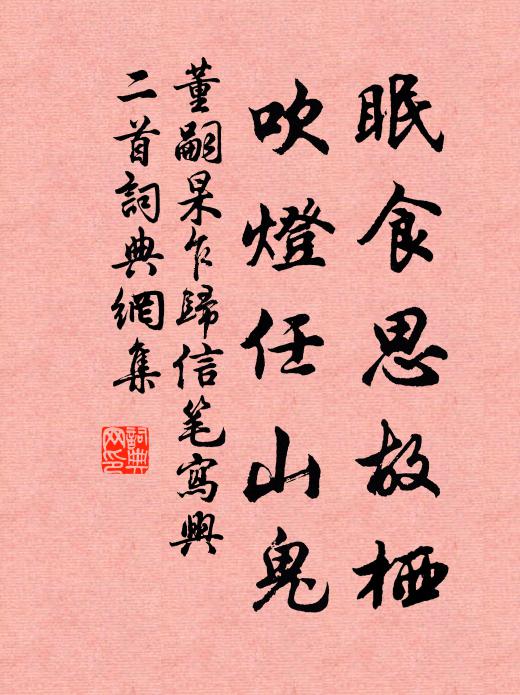 眠食思故栖
吹燈任山鬼
董嗣杲乍歸信笔寫興
二首詞典網集
詞典
网印